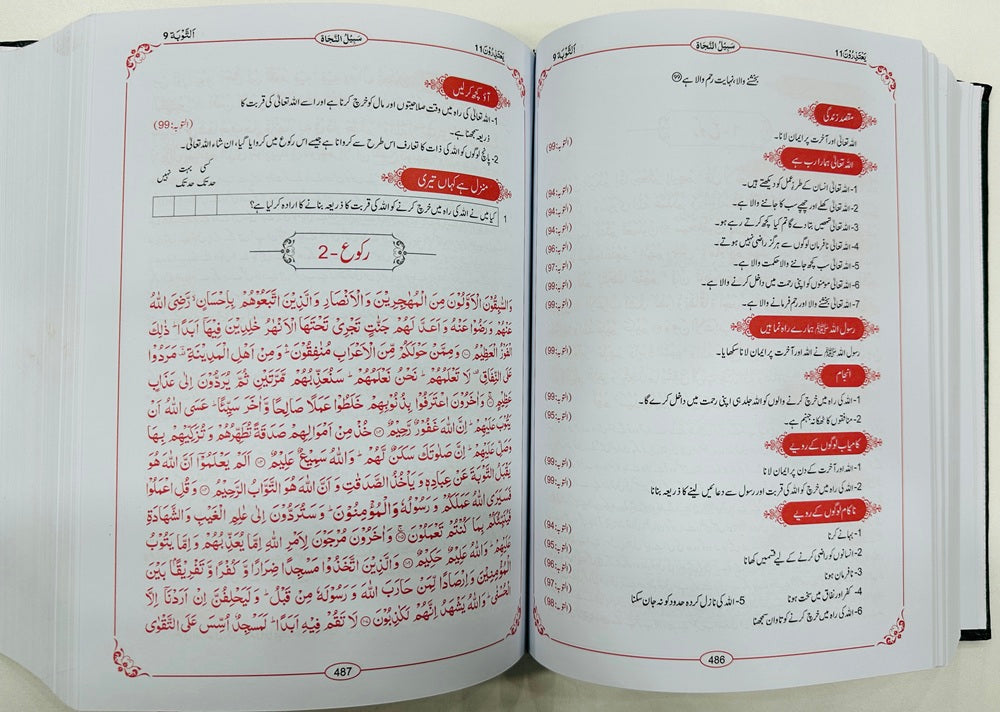 یَعْتَذِرُوْنَ 11
سَبِیْلُ النَّجَاۃ
اَلتَّوْبَة 9
بخشنے والا نہایت رحم والا ہے ﴿99﴾
مقصد زندگی
اللہ تعالیٰ اور آخرت پر ایمان لانا۔ (التوبہ:99)
اللہ تعالیٰ ہمارا رب ہے
1- اللہ تعالیٰ انسان کے طرزِ عمل کو دیکھتے ہیں۔ (التوبہ:94)
2- اللہ تعالیٰ کھلے اور چھپے سب کا جاننے والا ہے۔ (التوبہ:94)
3- اللہ تعالیٰ تمہیں بتا دے گا تم کیا کچھ کرتے رہے ہو۔ (التوبہ:94)
4- اللہ تعالیٰ نافرمان لوگوں سے ہرگز راضی نہیں ہوتے۔ (التوبہ:96)
5- اللہ تعالیٰ سب کچھ جاننے والا حکمت والا ہے۔ (التوبہ:97)
6- اللہ تعالیٰ مومنوں کو اپنی رحمت میں داخل کرنے والا ہے۔ (التوبہ:99)
7- اللہ تعالیٰ بخشنے والا اور رحم فرمانے والا ہے۔ (التوبہ:99)
رسول اللہ ﷺ ہمارے راہ نما ہیں
رسول اللہ ﷺ نے اللہ اور آخرت پر ایمان لانا سکھایا۔ (التوبہ:99)
انجام
1- اللہ کی راہ میں خرچ کرنے والوں کو اللہ جلد ہی اپنی رحمت میں داخل کرے گا۔ (التوبہ:99)
2- منافقوں کا ٹھکانہ جہنم ہے۔ (التوبہ:95)
کامیاب لوگوں کے رویے
1- اللہ اور آخرت کے دن پر ایمان لانا (التوبہ:99)
2- اللہ کی راہ میں خرچ کو اللہ کی قربت اور رسول سے دعائیں لینے کا ذریعہ بنانا (التوبہ:99)
ناکام لوگوں کے رویے
1- بہانے کرنا (التوبہ:94)
2- انسانوں کو راضی کرنے کے لیے قسمیں کھانا (التوبہ:95)
3- نافرمان ہونا (التوبہ:96)
4- کفر اور نفاق میں سخت ہونا 5- اللہ کی نازل کردہ حدود کو نہ جان سکنا (التوبہ:97)
6- اللہ کی راہ میں خرچ کرنے کو تاوان سمجھنا (التوبہ:98)
486
یَعْتَذِرُوْنَ 11
سَبِیْلُ النَّجَاۃ
اَلتَّوْبَة 9
آؤ کچھ کر لیں
1- اللہ تعالیٰ کی راہ میں وقت صلاحیتوں اور مال کو خرچ کرنا ہے اور اسے اللہ تعالیٰ کی قربت کا
ذریعہ سمجھنا ہے۔ (التوبہ:99)
2- پانچ لوگوں کو اللہ کی ذات کا تعارف اس طرح سے کروانا ہے جیسے اس رکوع میں کروایا گیا، ان شاء اللہ تعالیٰ۔
منزل ہے کہاں تیری
کسی حد تک بہت حد تک نہیں
1 کیا میں نے اللہ کی راہ میں خرچ کرنے کو اللہ کی قربت کا ذریعہ بنانے کا ارادہ کر لیا ہے؟
رکوع - 2
وَالسّٰبِقُوْنَ الْاَوَّلُوْنَ مِنَ الْمُهٰجِرِيْنَ وَالْاَنْصَارِ وَالَّذِيْنَ اتَّبَعُوْهُمْ بِاِحْسَانٍ ۙ رَّضِيَ اللّٰهُ
عَنْهُمْ وَرَضُوْا عَنْهُ وَاَعَدَّ لَهُمْ جَنّٰتٍ تَجْرِيْ تَحْتَهَا الْاَنْهٰرُ خٰلِدِيْنَ فِيْهَآ اَبَدًا ؕ ذٰلِكَ
الْفَوْزُ الْعَظِيْمُ ۝ وَمِمَّنْ حَوْلَكُمْ مِّنَ الْاَعْرَابِ مُنٰفِقُوْنَ ۛ وَمِنْ اَهْلِ الْمَدِيْنَةِ ۛ مَرَدُوْا
عَلَى النِّفَاقِ ۣ لَا تَعْلَمُهُمْ ؕ نَحْنُ نَعْلَمُهُمْ ؕ سَنُعَذِّبُهُمْ مَّرَّتَيْنِ ثُمَّ يُرَدُّوْنَ اِلٰى عَذَابٍ
عَظِيْمٍ ۝ وَاٰخَرُوْنَ اعْتَرَفُوْا بِذُنُوْبِهِمْ خَلَطُوْا عَمَلًا صَالِحًا وَّاٰخَرَ سَيِّئًا ؕ عَسَى اللّٰهُ اَنْ
يَّتُوْبَ عَلَيْهِمْ ؕ اِنَّ اللّٰهَ غَفُوْرٌ رَّحِيْمٌ ۝ خُذْ مِنْ اَمْوَالِهِمْ صَدَقَةً تُطَهِّرُهُمْ وَتُزَكِّيْهِمْ بِهَا
وَصَلِّ عَلَيْهِمْ ؕ اِنَّ صَلٰوتَكَ سَكَنٌ لَّهُمْ ؕ وَاللّٰهُ سَمِيْعٌ عَلِيْمٌ ۝ اَلَمْ يَعْلَمُوْٓا اَنَّ اللّٰهَ هُوَ
يَقْبَلُ التَّوْبَةَ عَنْ عِبَادِهٖ وَيَاْخُذُ الصَّدَقٰتِ وَاَنَّ اللّٰهَ هُوَ التَّوَّابُ الرَّحِيْمُ ۝ وَقُلِ اعْمَلُوْا
فَسَيَرَى اللّٰهُ عَمَلَكُمْ وَرَسُوْلُهٗ وَالْمُؤْمِنُوْنَ ؕ وَسَتُرَدُّوْنَ اِلٰى عٰلِمِ الْغَيْبِ وَالشَّهَادَةِ
فَيُنَبِّئُكُمْ بِمَا كُنْتُمْ تَعْمَلُوْنَ ۝ وَاٰخَرُوْنَ مُرْجَوْنَ لِاَمْرِ اللّٰهِ اِمَّا يُعَذِّبُهُمْ وَاِمَّا يَتُوْبُ
عَلَيْهِمْ ؕ وَاللّٰهُ عَلِيْمٌ حَكِيْمٌ ۝ وَالَّذِيْنَ اتَّخَذُوْا مَسْجِدًا ضِرَارًا وَّكُفْرًا وَّتَفْرِيْقًۢا بَيْنَ
الْمُؤْمِنِيْنَ وَاِرْصَادًا لِّمَنْ حَارَبَ اللّٰهَ وَرَسُوْلَهٗ مِنْ قَبْلُ ؕ وَلَيَحْلِفُنَّ اِنْ اَرَدْنَآ اِلَّا
الْحُسْنٰى ؕ وَاللّٰهُ يَشْهَدُ اِنَّهُمْ لَكٰذِبُوْنَ ۝ لَا تَقُمْ فِيْهِ اَبَدًا ؕ لَمَسْجِدٌ اُسِّسَ عَلَى التَّقْوٰى
487